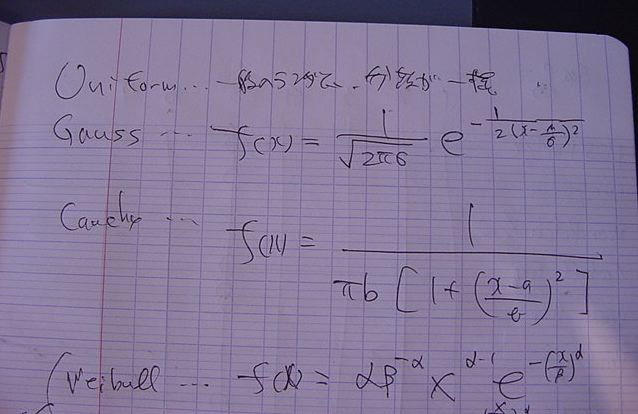 Uniform... 一様
Gauss ... f(x) = 1/√(2πσ) e^{-1/(2(x-μ/σ)^2)}
Cauchy ... f(x) = 1/(πb[1+((x-a)/b)^2])
Weibull ... f(x) = αβ^{-α} x^{α-1} e^{-(x/β)^α}